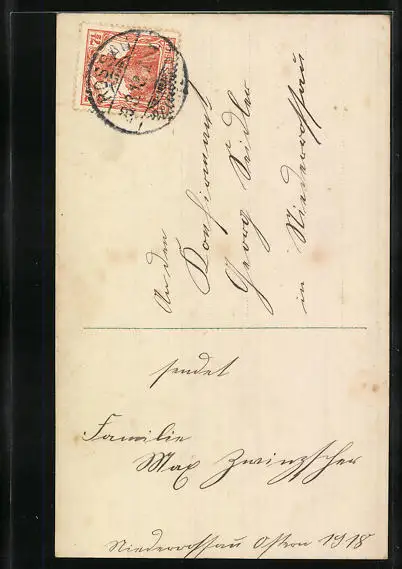 ROSSAU
An den
Konfirmant
Georg Seidler
in Niederrossau
sendet
Familie
Max Zwinzscher
Niederrossau Ostern 1918